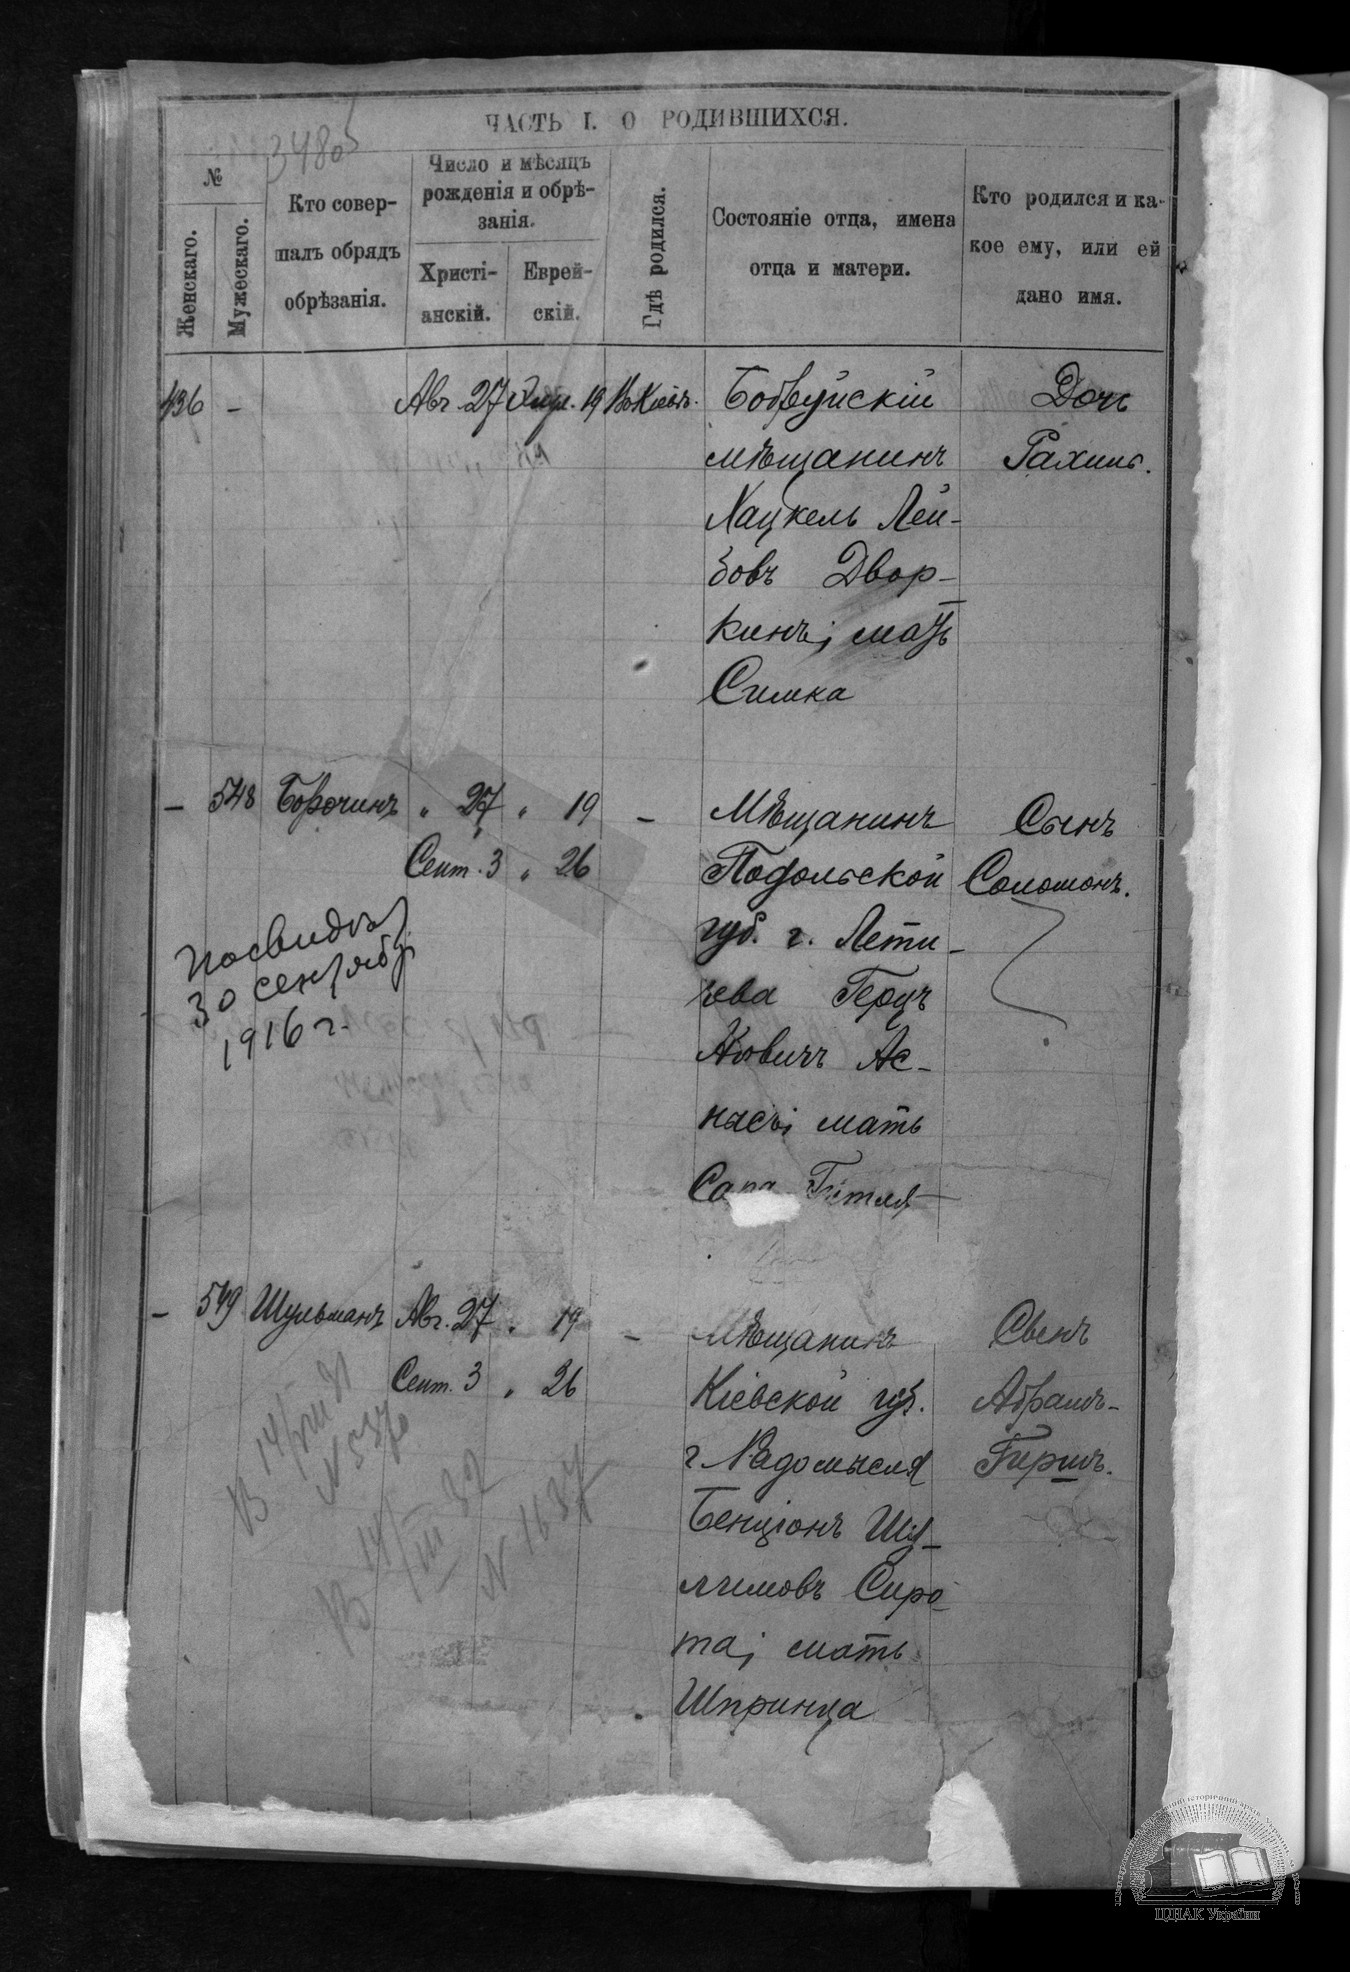 ЧАСТЬ I. О РОДИВШИХСЯ.
№
Женскаго.
Мужескаго.
Кто совер-
шалъ обрядъ
обрѣзанія.
Число и мѣсяцъ
рожденія и обрѣ-
занія.
Христі-
анскій.
Еврей-
скій.
Гдѣ родился.
Состояніе отца, имена
отца и матери.
Кто родился и ка-
кое ему, или ей
дано имя.
436 - Авг. 27 19 Въ Кіевѣ.
Бобруйскій
мѣщанинъ
Хацкель Лей-
бовъ Двор-
кинъ; мать
Симка
Дочь
Рахиль.
- 548 „ 27 „ 19 -
Сент. 3 „ 26
Мѣщанинъ
Подольской
губ. г. Лети-
чева Герцъ
Ас-
насъ; мать
Сара Гитля
Сынъ
Соломонъ.
30 сентября
1916 г.
- 549 Шульманъ Авг. 27 „ 19 -
Сент. 3 „ 26
Мѣщанинъ
Кіевской губ.
г. Радомысля
Бенціонъ Шу-
лимовъ Сиро-
та; мать
Шпринца
Сынъ
Абрамъ-
Гершъ.
В 14/VIII
N 5376
В 14/III 37
N 1637
ЦДІАК України